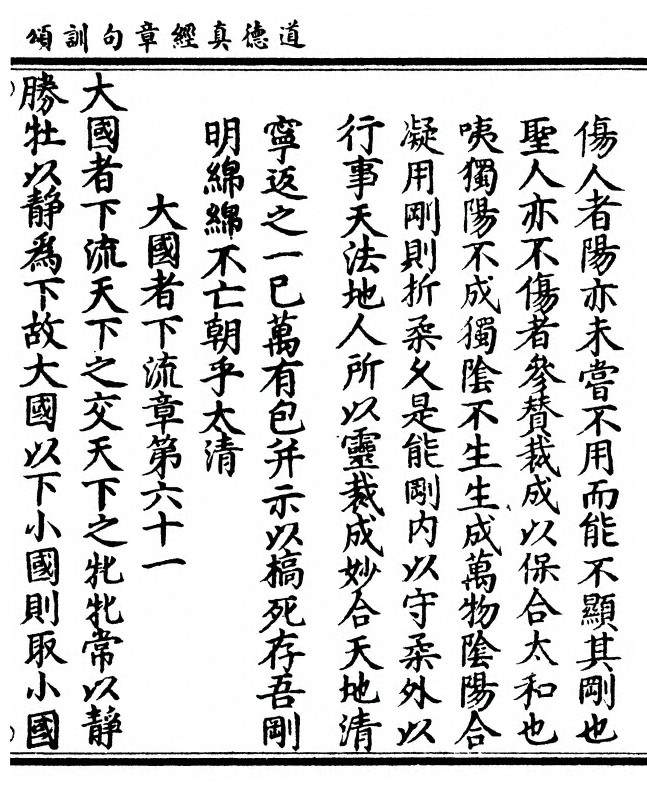 道德真經章句訓頌
傷人者陽亦未嘗不用而能不顯其剛也
聖人亦不傷者參贊裁成以保合太和也
咦獨陽不成獨陰不生生成萬物陰陽合
凝用剛則折柔乆是能剛内以守柔外以
行事天法地人所以靈裁成妙合天地清
寧返之一已萬有包并示以槁死存吾剛
明綿綿不亡朝乎太清
大國者下流章第六十一
大國者下流天下之交天下之牝牝常以靜
勝牡以靜為下故大國以下小國則取小國